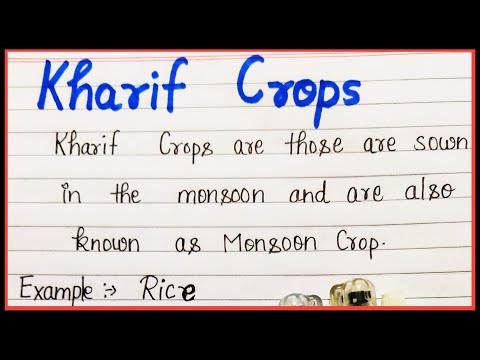 Kharif Crops
Kharif Crops are those are sown
in the monsoon and are also
known as Monsoon Crop.
Example :-> Rice